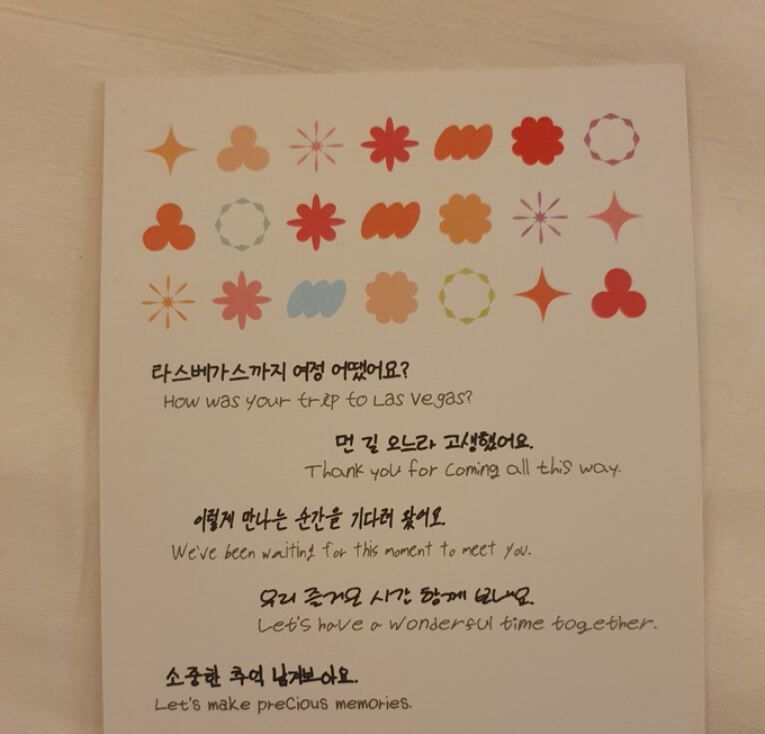 라스베가스까지 여정 어땠어요?
How was your trip to Las Vegas?
먼 길 오느라 고생했어요.
Thank you for coming all this way.
이렇게 만나는 순간을 기다려 왔어요.
We've been waiting for this moment to meet you.
우리 즐거운 시간 함께 보내요.
Let's have a wonderful time together.
소중한 추억 남겨보아요.
Let's make precious memories.